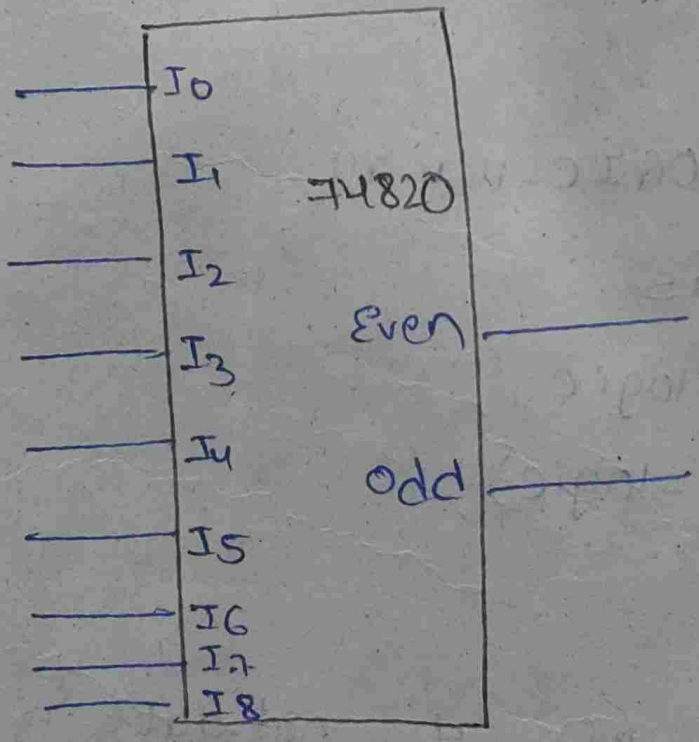 I0
I1
74820
I2
Even
I3
I4
Odd
I5
I6
I7
I8